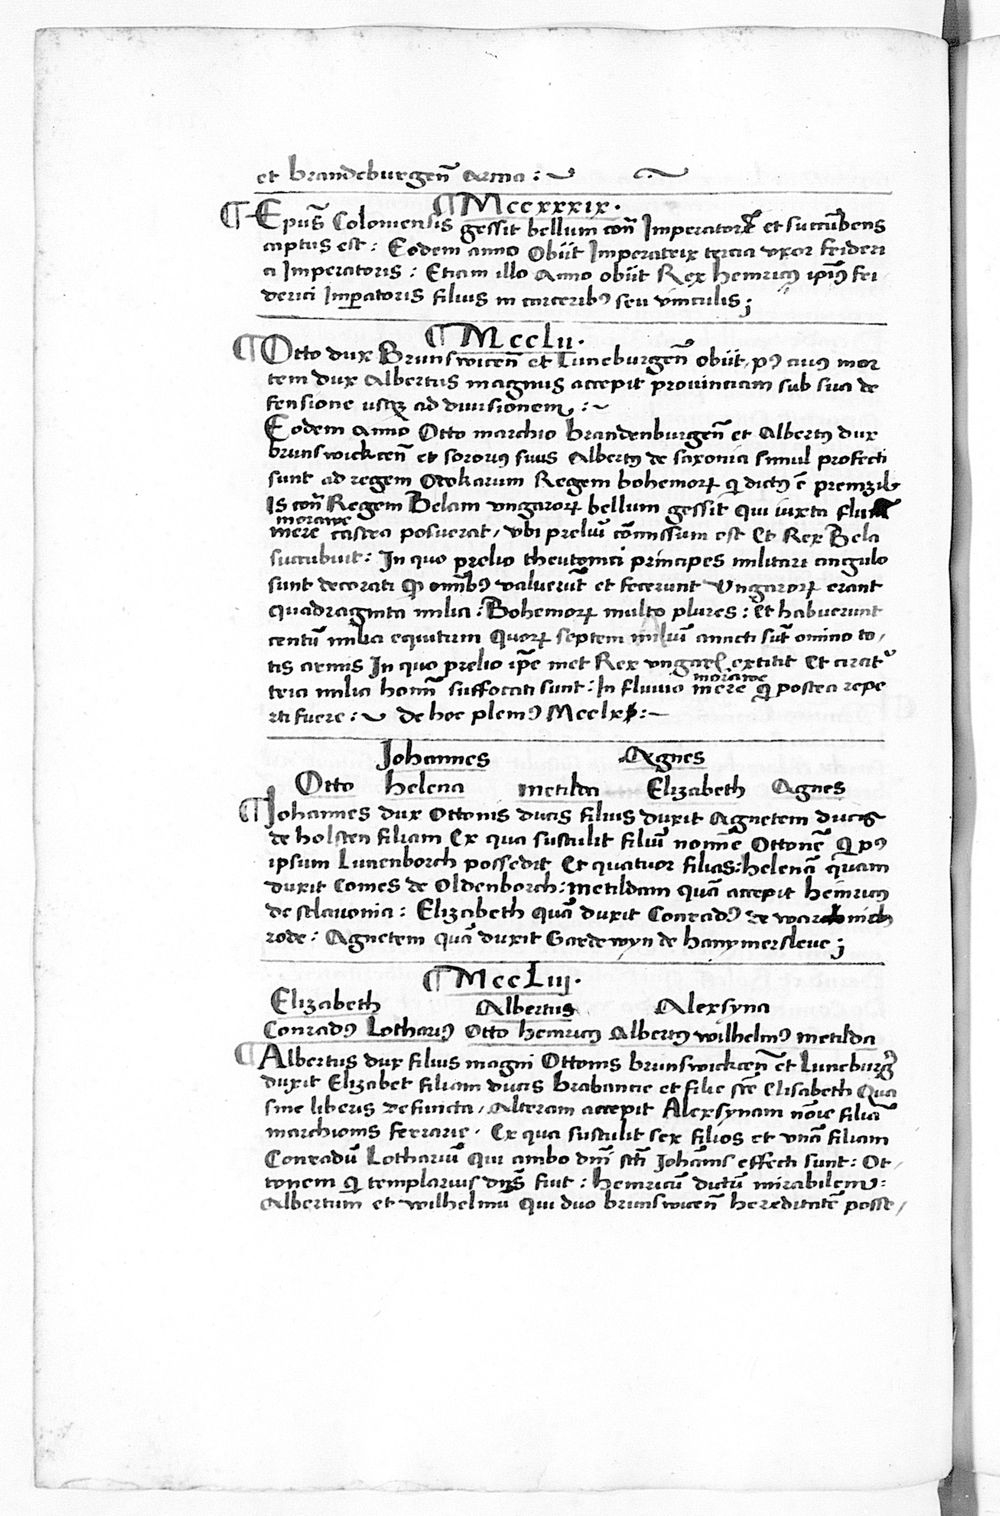 et brandeburgen̄ arma :~ ~
¶ Mccxxxix.
¶ Epus̄ Coloniensis gessit bellum con̄ Imperatorē et succūbens
captus est : Eodem anno Obiit Imperatrix tercia vxor frideri
ci Imperatoris : Etiam illo Anno obiit Rex henricꝰ ipīꝰ fri
derici Imꝑatoris filius in carceribꝰ seu vinculis ;
¶ MccLii.
¶ Otto dux Brunswicen̄ et Luneburgen̄ obiit, pꝰ cuiꝰ mor
tem dux Albertus magnus accepit prouinciam sub sua de
fensione usqꝫ ad diuisionem :~
Eodem Anno Otto marchio brandenburgen̄ et Albertꝰ dux
brunswickcen̄ et sororiꝰ suus Albertꝰ de saxonia simul profecti
sunt ad regem Otokarum Regem bohemorꝝ q̄ dictꝰ ē premzil
Is con̄ Regem Belam vngarorꝝ bellum gessit qui iuxta flum̄
morawe
mere castra posuerat, vbi preliū cōmissum est Et Rex Bela
succubuit : In quo prelio theutonici principes militari cingulo
sunt decorati qꝫ omībꝰ valuerūt et fecerunt Vngarorꝝ erant
quadraginta milia : Bohemorꝝ multo plures : Et habuerunt
centū milia equitum Quorꝝ septem miliū amicti sūt omino to,
tis armis In quo prelio ip̄e met Rex vngarꝝ extitit Et circat
morawe
teria milia homī suffocati sunt : In fluuio mere q̄ postea repe
rti fuere :~ de hoc plenꝰ Mcclx :~
Johannes Agnes
Otto helena metilda Elizabeth Agnes
¶ Johannes dux Ottonis ducis filius duxit Agnetem ducis
de holsten filiam Ex qua sustulit filiū nomīe Ottonē q̄ pꝰ
ipsum Lunenborch possedit Et quatuor filias : helenā quam
duxit Comes de Oldenborch : metildam quā accepit heinricꝰ
de sclauonia : Elizabeth quā duxit Conradꝰ de
rode : Agnetem quā duxit Gardewyn de hanymersleue ;
¶ MccLiij.
Elizabeth Albertus Alexsyna
Conradꝰ Lothariꝰ Otto heinricꝰ Albertꝰ wilhelmꝰ metilda
¶ Albertus dux filius magni Ottonis brunswickcen̄ et Luneburgꝭ
duxit Elizabet filiam ducis brabancie et filie scē Elisabeth Qua
sine liberis defuncta, Alteram accepit Alexsynam nōie filiā
marchionis ferrarie . Ex qua sustulit sex filios et vnā filiam
Conradū Lothariū qui ambo dn̄i sc̄ti Johānis effecti sunt : Ot,
tonem q̄ templarius dn̄s fuit : heinricū dictū mirabilem :
Albertum et wilhelmū Qui duo brunswicen̄ hereditatē posse,